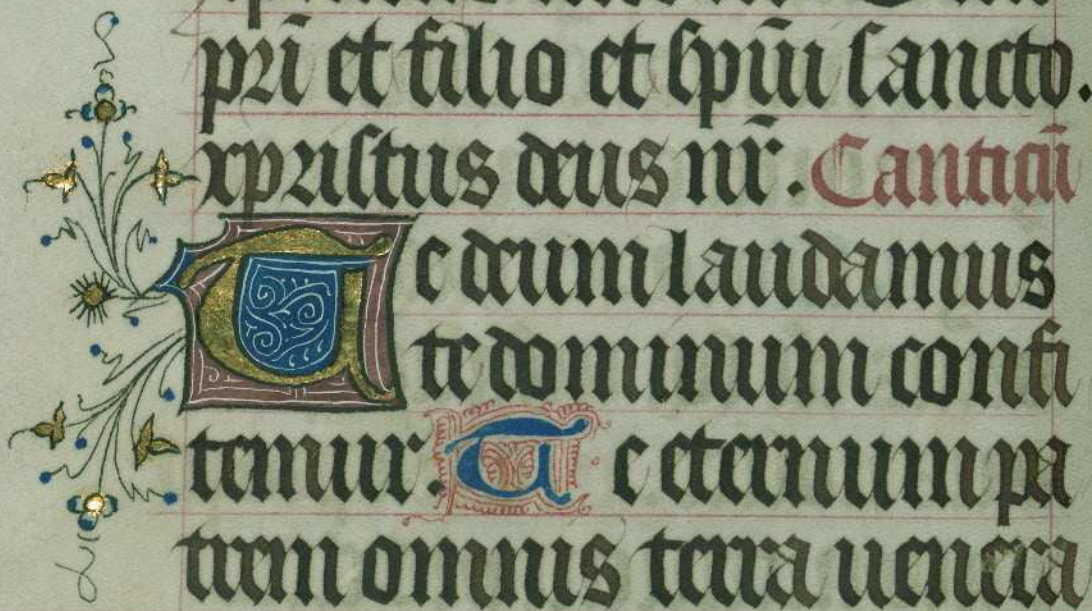 pri̅ et filio et spu̅i sancto.
xpristus deus nr̅. Canticu̅
Te deum laudamus
te dominum confi
temur. Te eternum pa
trem omnis terra uenera